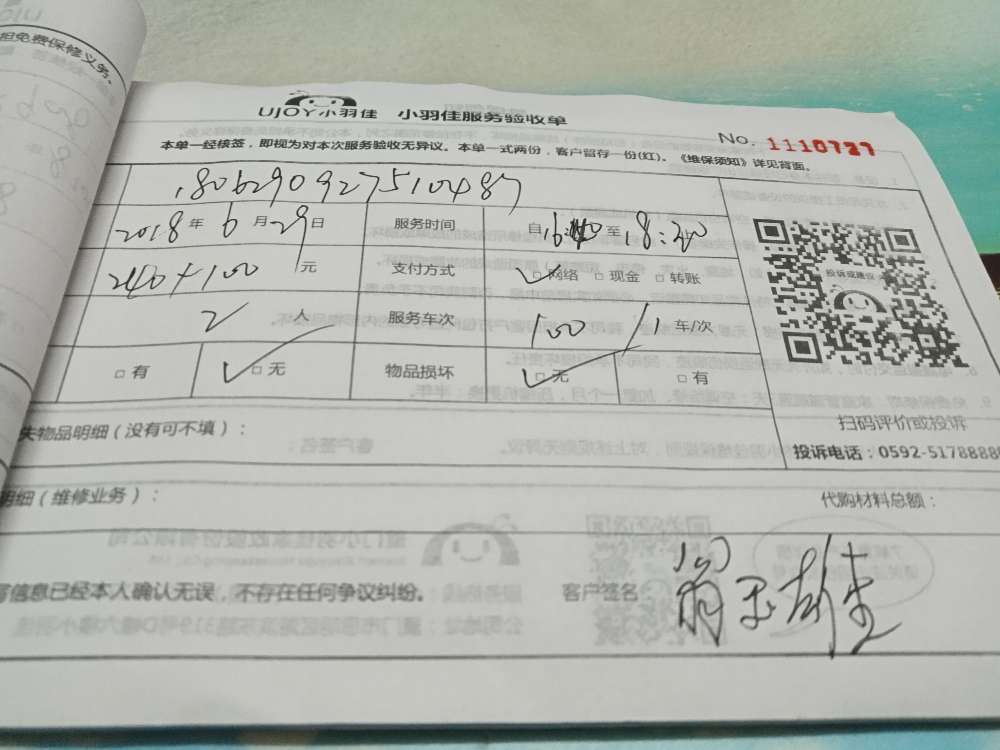 担免费保修义务。
UJOY小羽佳 小羽佳服务验收单
No. 1110727
本单一经核签，即视为对本次服务验收无异议。本单一式两份，客户留存一份(红)。《维保须知》详见背面。
1806290927510487
2018年6月29日 服务时间 自16:40至18:30
240+100元 支付方式 ✓□网络 □现金 □转账
2人 服务车次 100/1车/次
□有 ✓□无 物品损坏 ✓□无 □有
投诉或建议
扫码评价或投诉
投诉电话：0592-5178888
失物品明细（没有可不填）：
明细（维修业务）： 代购材料总额：
写信息已经本人确认无误，不存在任何争议纠纷。 客户签名